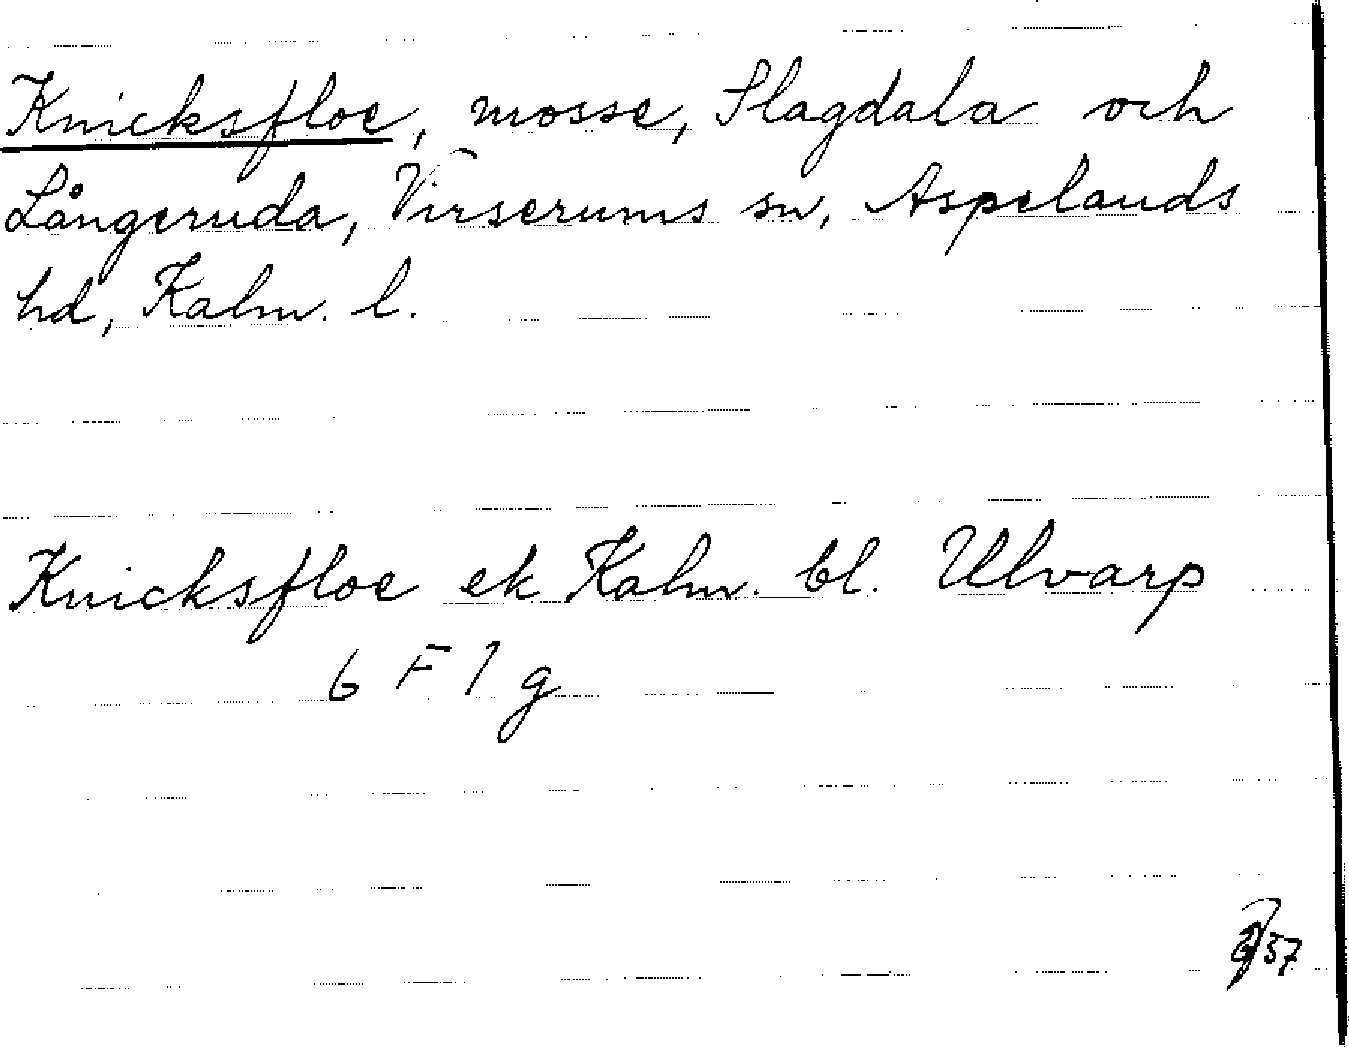 Knicksfloe, mosse, Slagdala och
Långeruda, Virserums sn, Aspelands
hd, Kalm. l.
Knicksfloe ek Kalm. bl. Ulvarp
6 F 1 g
37